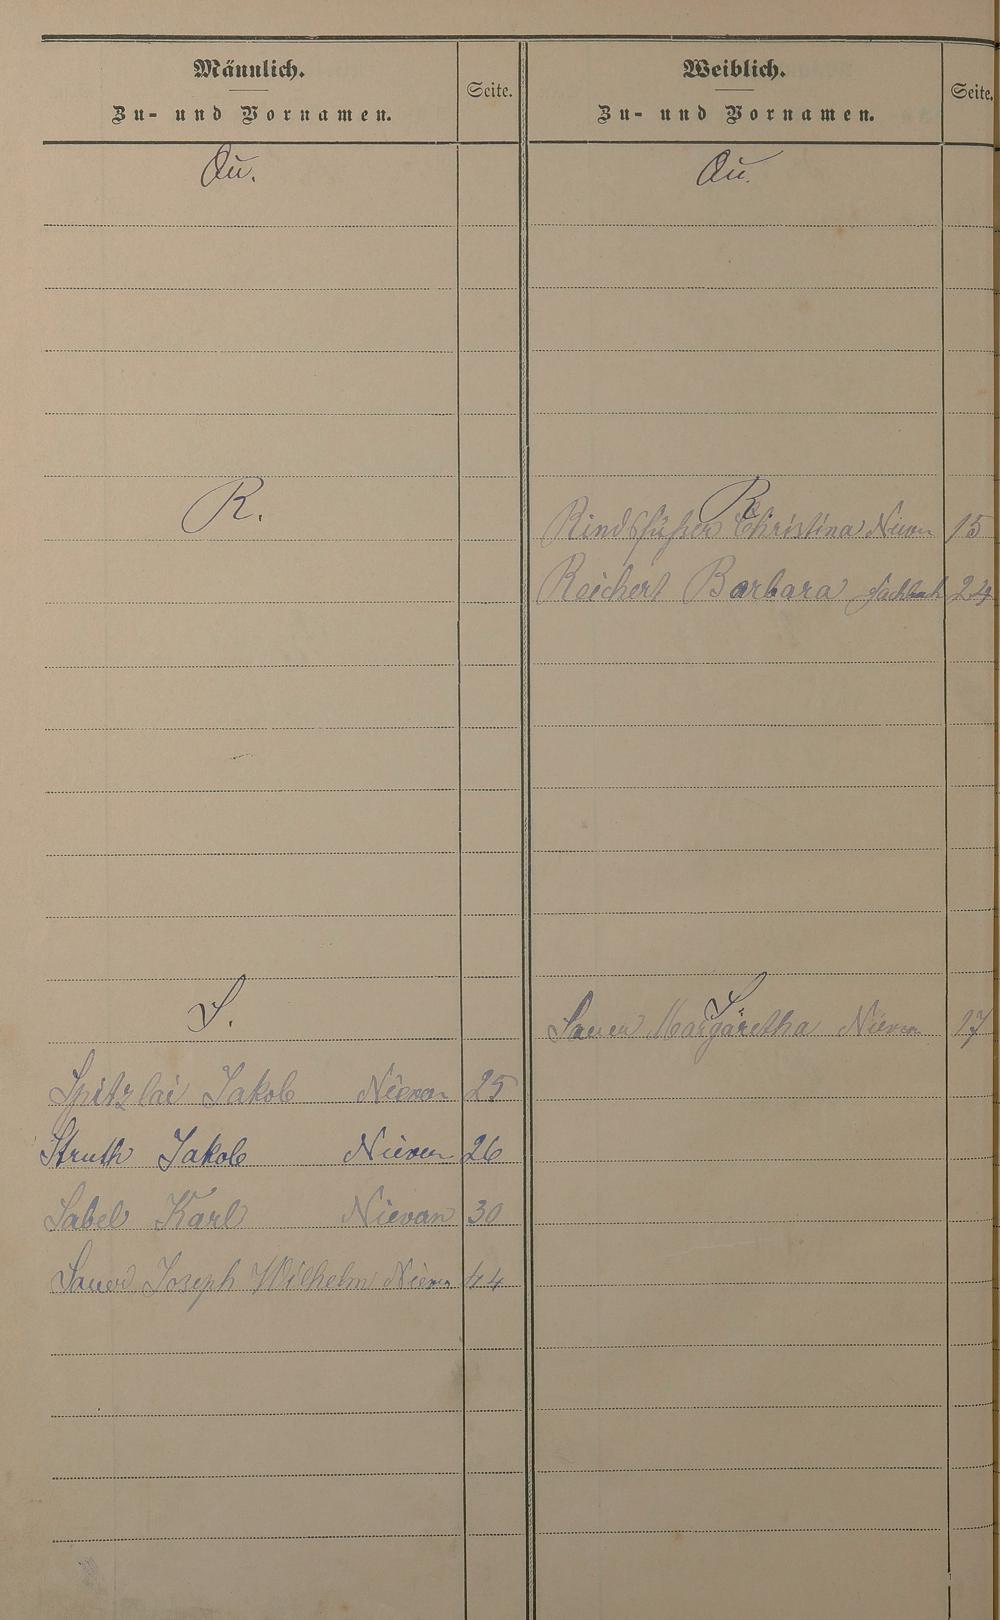 Männlich.
Zu- und Vornamen.
Seite.
Qu.
R.
S.
Spitzlai Jakob Nievern 25
Struth Jakob Nievern 26
Sabel Karl Nievern 30
Sauer Joseph Wilhelm Nievern 44
Weiblich.
Zu- und Vornamen.
Seite.
Qu.
R.
Rindsfüßer Christina Nievern 15
Reichert Barbara Fachbach 24
S.
Sauer Margaretha Nievern 17